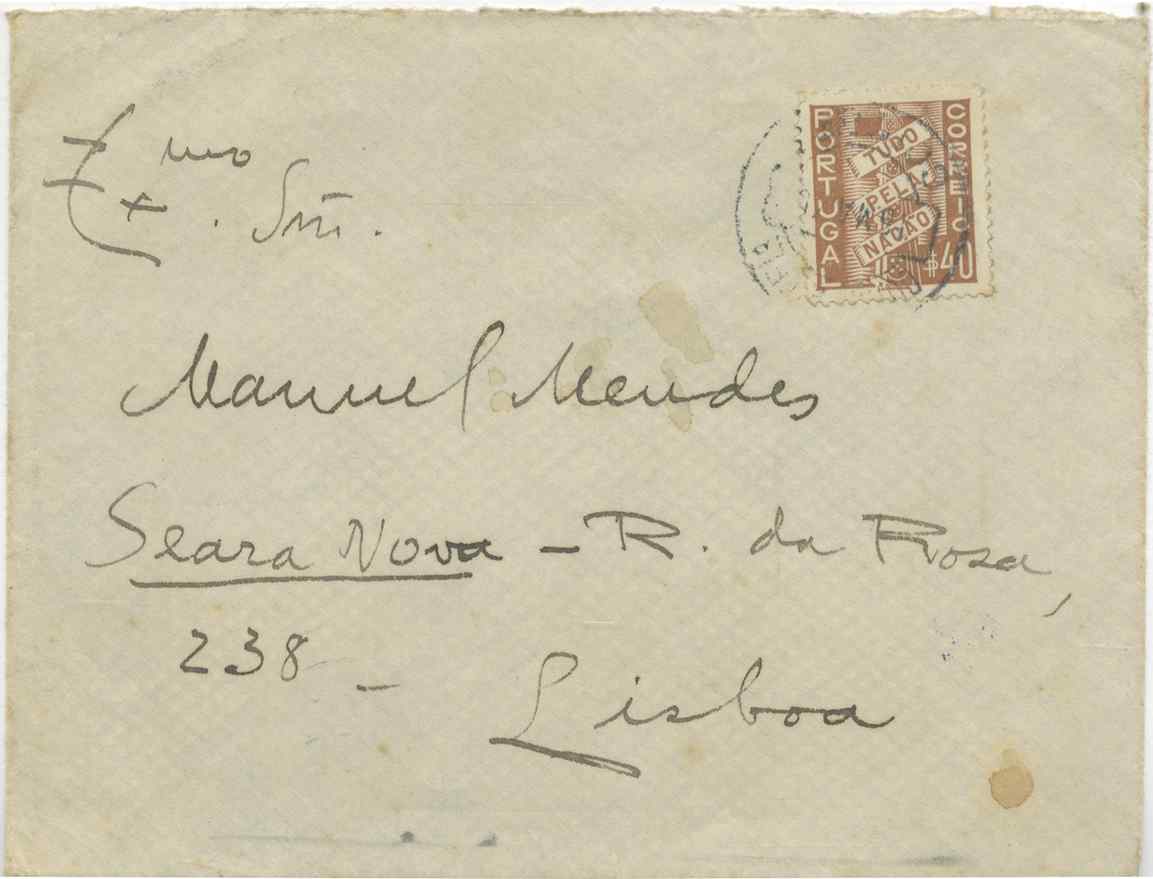 Exmo. Snr.
Manuel Mendes
Seara Nova - R. da Rosa,
238 -
Lisboa
PORTUGAL
CORREIO
TUDO
PELA
NAÇÃO
$40